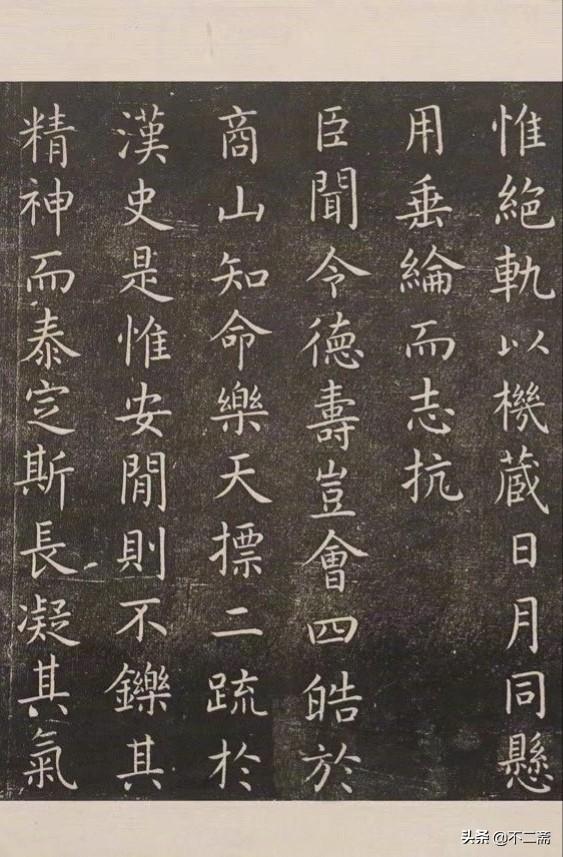 惟絕軌以機蔵日月同懸
用垂綸而志抗
臣聞令德壽豈會四皓於
商山知命樂天摽二疏於
漢史是惟安閒則不鑠其
精神而泰定斯長凝其氣
头条 @不二斋